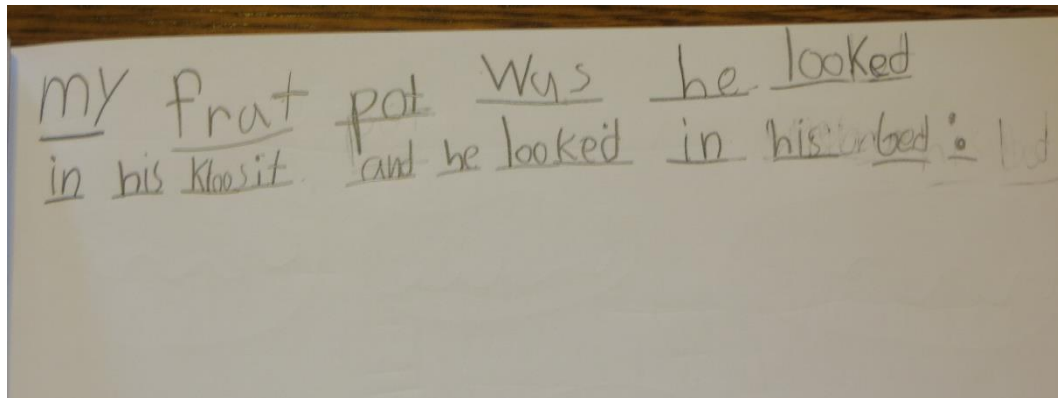 my frat pot was he looked
in his kloosit and he looked in his bed.